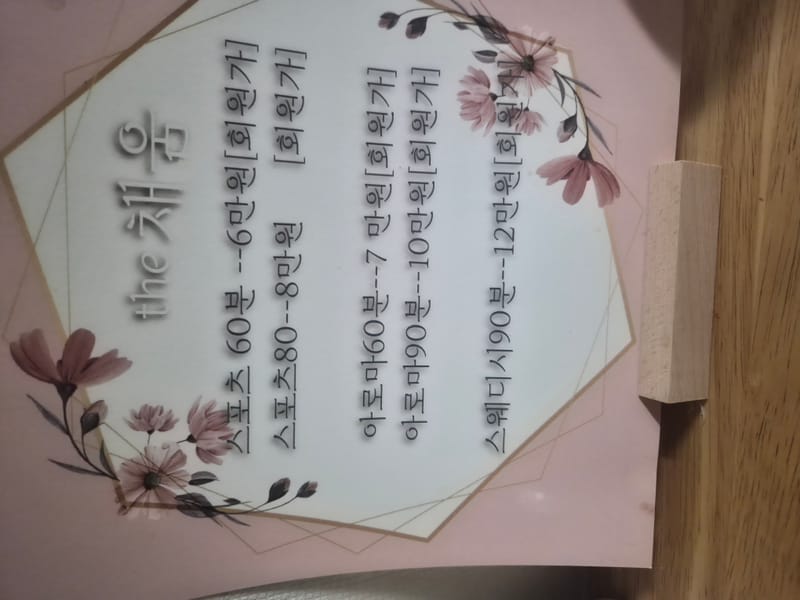 the 채움
스포츠 60분 --6만원[회원가]
스포츠80---8만원 [회원가]
아로마60분--7 만원[회원가]
아로마90분--10만원[회원가]
스웨디시90분--12만원[회원가]